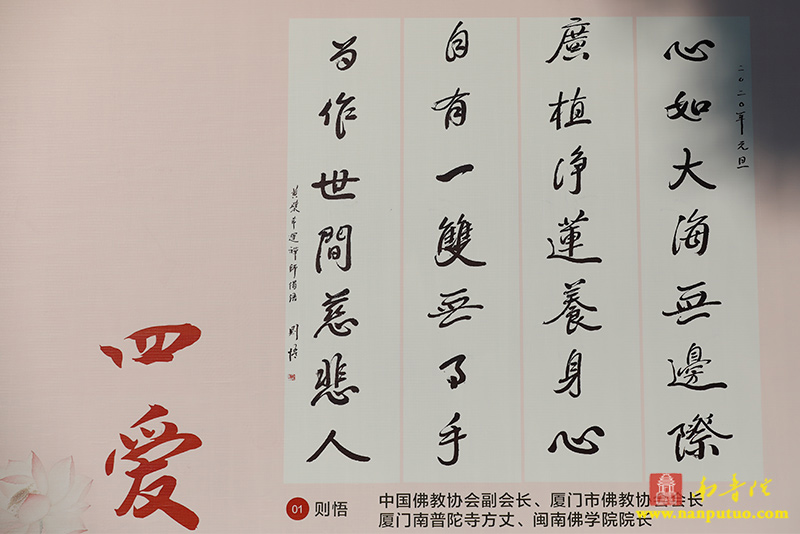 二〇二〇年元旦
心如大海無邊際
廣植淨蓮養身心
自有一雙無事手
為作世間慈悲人
黄檗希運禪師偈語 则悟
四爱
01 则悟
中国佛教协会副会长、厦门市佛教协会会长
厦门南普陀寺方丈、闽南佛学院院长
南普陀
www.nanputuo.com